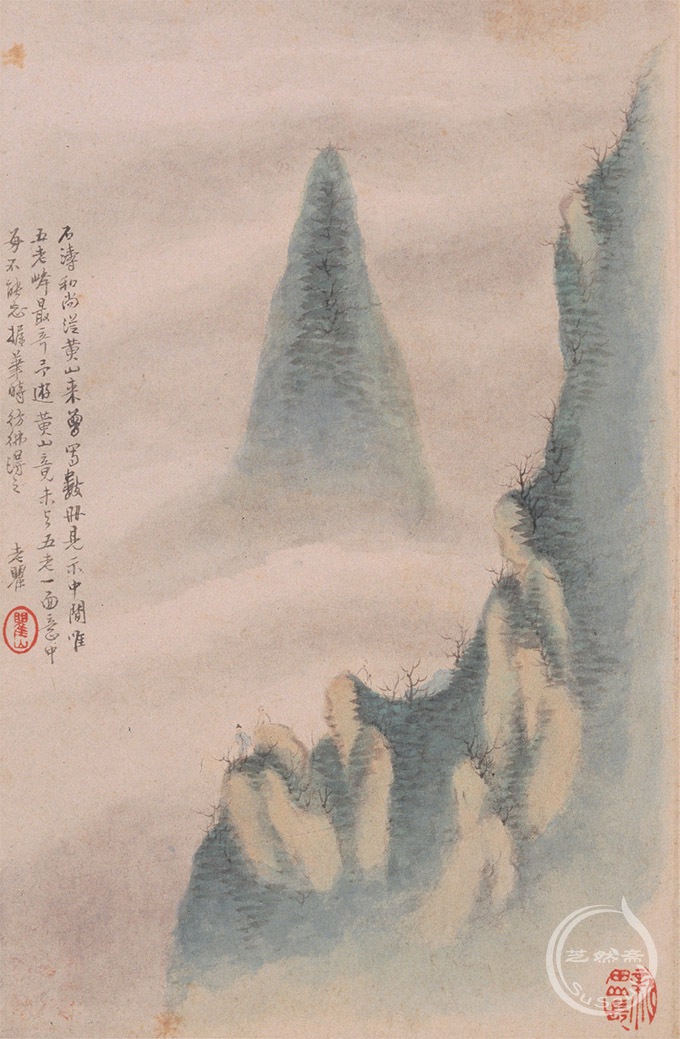 石濤和尚從黄山来曾寫數冊見示中間唯
五老峰最奇予遊黄山竟未与五老一面意中
每不能忘握筆時彷彿得之
老瞿
瞿山